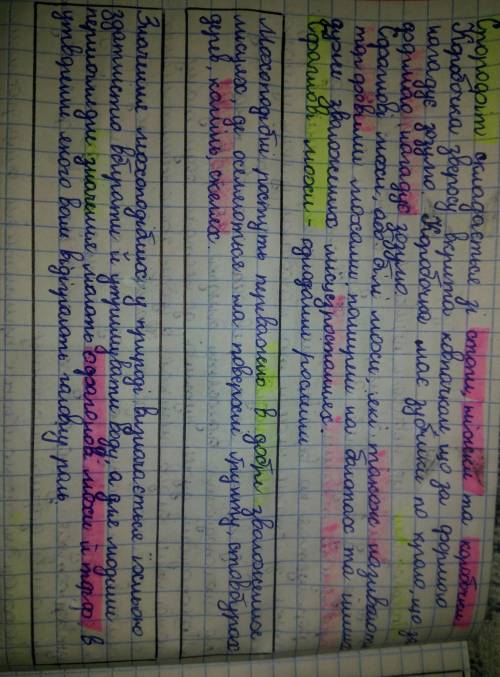 Спородот складається зі стопи, ніжки та коробочки.
Коробочка зверху вкрита ковпачком, що за формою
нагадує дзьоб. Коробочка має зубчики по краю, що за
формою нагадує зозулю.
Сфагнові мохи, або білі мохи, які також називають
торф'яними мохами, поширені на болотах та інших
дуже зволожених місцезростаннях.
Сфагнові мохи - однодомні рослини
Мохоподібні ростуть переважно в добре зволожених
місцях де оселяються на поверхні ґрунту, стовбурах
дерев, камінні, скелях.
Значення мохоподібних у природі визначається їхньою
здатністю вбирати й утримувати воду, а для людини
першочергове значення мають сфагнові мохи й торф, в
утворенні якого вони відіграють головну роль.